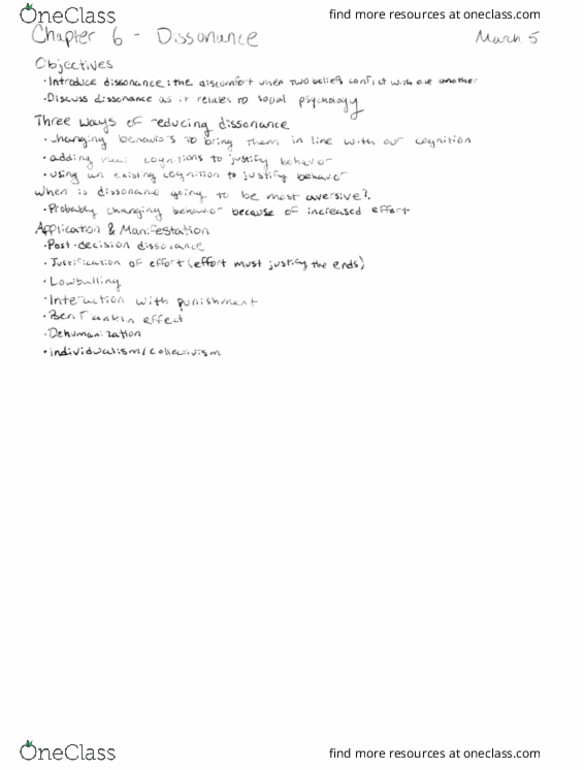 OneClass
find more resources at oneclass.com
Chapter 6 - Dissonance
March 5
Objectives
• Introduce dissonance: the discomfort when two beliefs conflict with one another
• Discuss dissonance as it relates to social psychology
Three ways of reducing dissonance
• changing behaviors to bring them in line with our cognition
• adding new cognitions to justify behavior
• using an existing cognition to justify behavior
When is dissonance going to be most aversive?
• Probably changing behavior because of increased effort
Application & Manifestation
• Post-decision dissonance
• Justification of effort (effort must justify the ends)
• Lowballing
• Interaction with punishment
• Ben Franklin effect
• Dehumanization
• individualism/collectivism
OneClass
find more resources at oneclass.com